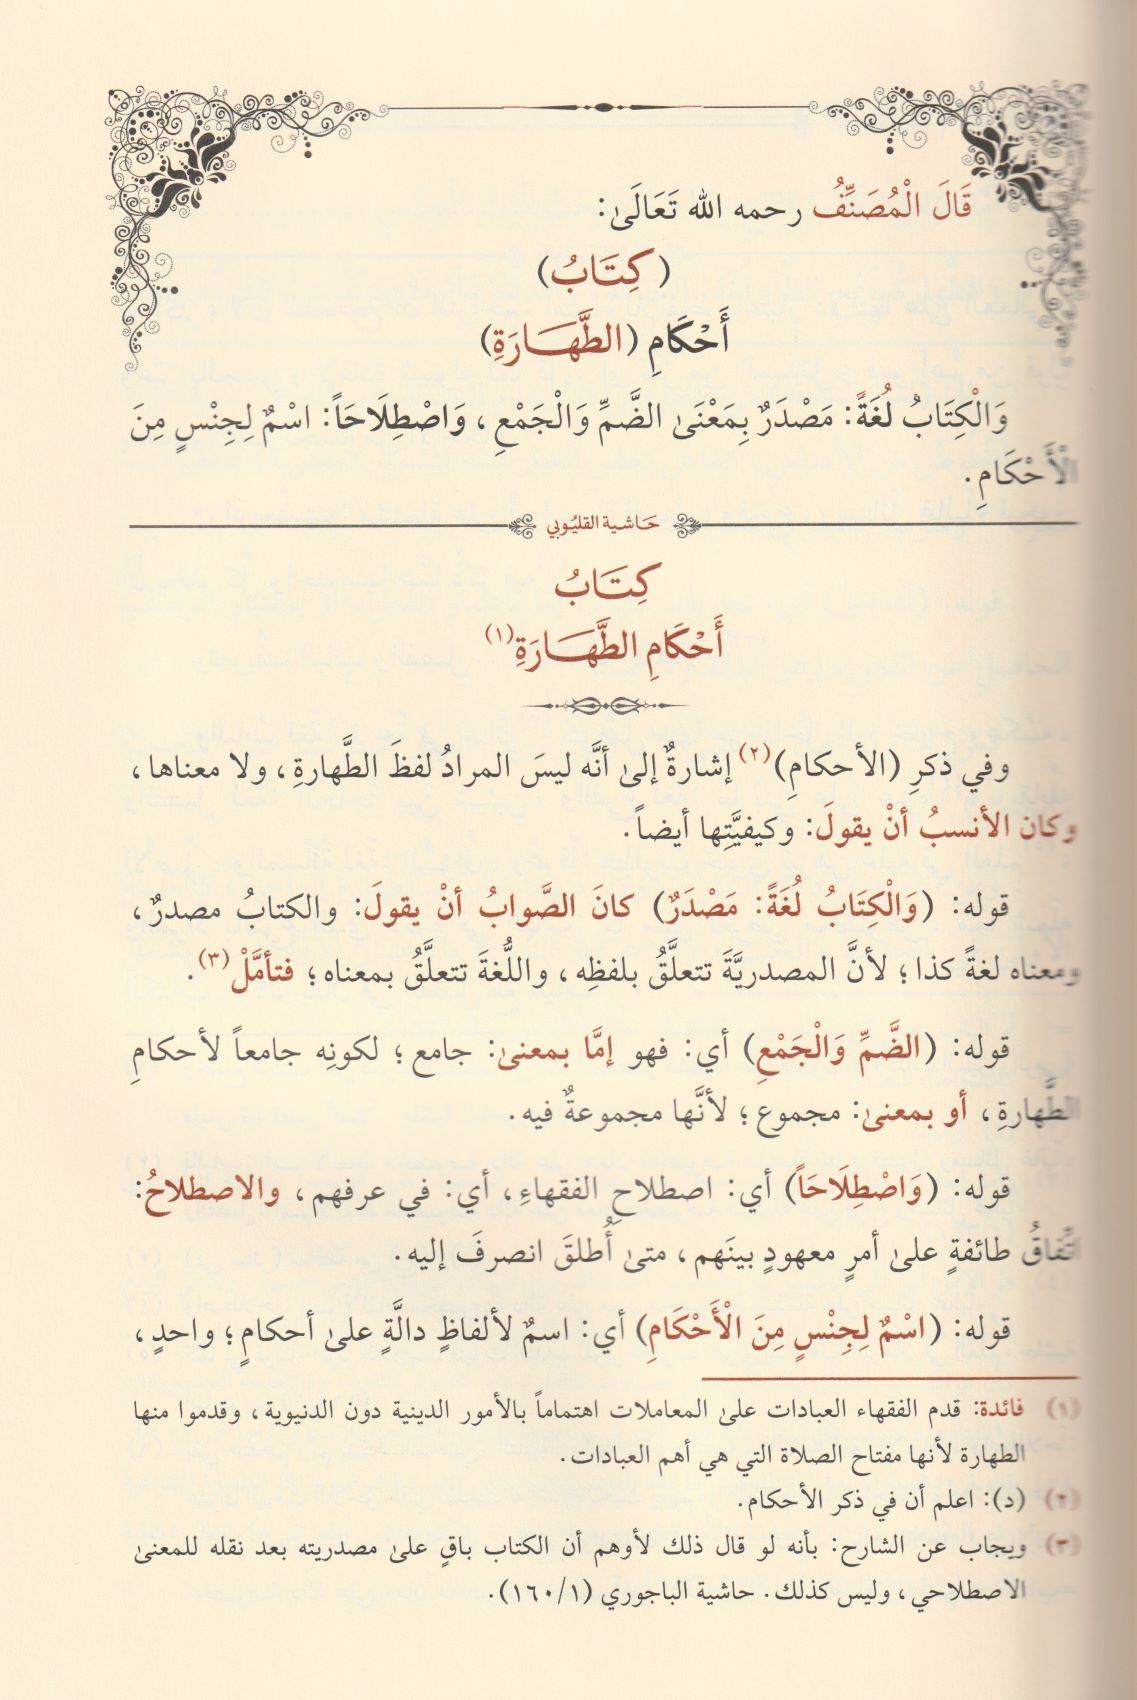 قَالَ الْمُصَنِّفُ رحمه الله تَعَالَىٰ:
(كِتَابُ)
أَحْكَامِ (الطَّهَارَةِ)
وَالْكِتَابُ لُغَةً: مَصْدَرٌ بِمَعْنَىٰ الضَّمِّ وَالْجَمْعِ، وَاصْطِلَاحَاً: اسْمٌ لِجِنْسٍ مِنَ
الْأَحْكَامِ.
حَاشية القليُوبي
كِتَابُ
أَحْكَامِ الطَّهَارَةِ(١)
وفي ذكرِ (الأحكامِ)(٢) إشارةٌ إلىٰ أنَّه ليسَ المرادُ لفظَ الطَّهارةِ، ولا معناها،
وكان الأنسبُ أنْ يقولَ: وكيفيَّتِها أيضاً.
قوله: (وَالْكِتَابُ لُغَةً: مَصْدَرٌ) كانَ الصَّوابُ أنْ يقولَ: والكتابُ مصدرٌ،
ومعناه لغةً كذا؛ لأنَّ المصدريَّةَ تتعلَّقُ بلفظِه، واللُّغةَ تتعلَّقُ بمعناه؛ فتأمَّلْ(٣).
قوله: (الضَّمِّ وَالْجَمْعِ) أي: فهو إمَّا بمعنىٰ: جامع؛ لكونِه جامعاً لأحكامِ
الطَّهارةِ، أو بمعنىٰ: مجموع؛ لأنَّها مجموعةٌ فيه.
قوله: (وَاصْطِلَاحَاً) أي: اصطلاحِ الفقهاءِ، أي: في عرفهم، والاصطلاحُ:
اتِّفاقُ طائفةٍ علىٰ أمرٍ معهودٍ بينَهم، متىٰ أُطلقَ انصرفَ إليه.
قوله: (اسْمٌ لِجِنْسٍ مِنَ الْأَحْكَامِ) أي: اسمٌ لألفاظٍ دالَّةٍ علىٰ أحكامٍ؛ واحدٍ،
(١) فائدة: قدم الفقهاء العبادات علىٰ المعاملات اهتماماً بالأمور الدينية دون الدنيوية، وقدموا منها
الطهارة لأنها مفتاح الصلاة التي هي أهم العبادات.
(٢) (د): اعلم أن في ذكر الأحكام.
(٣) ويجاب عن الشارح: بأنه لو قال ذلك لأوهم أن الكتاب باقٍ علىٰ مصدريته بعد نقله للمعنىٰ
الاصطلاحي، وليس كذلك. حاشية الباجوري (١/١٦٠).